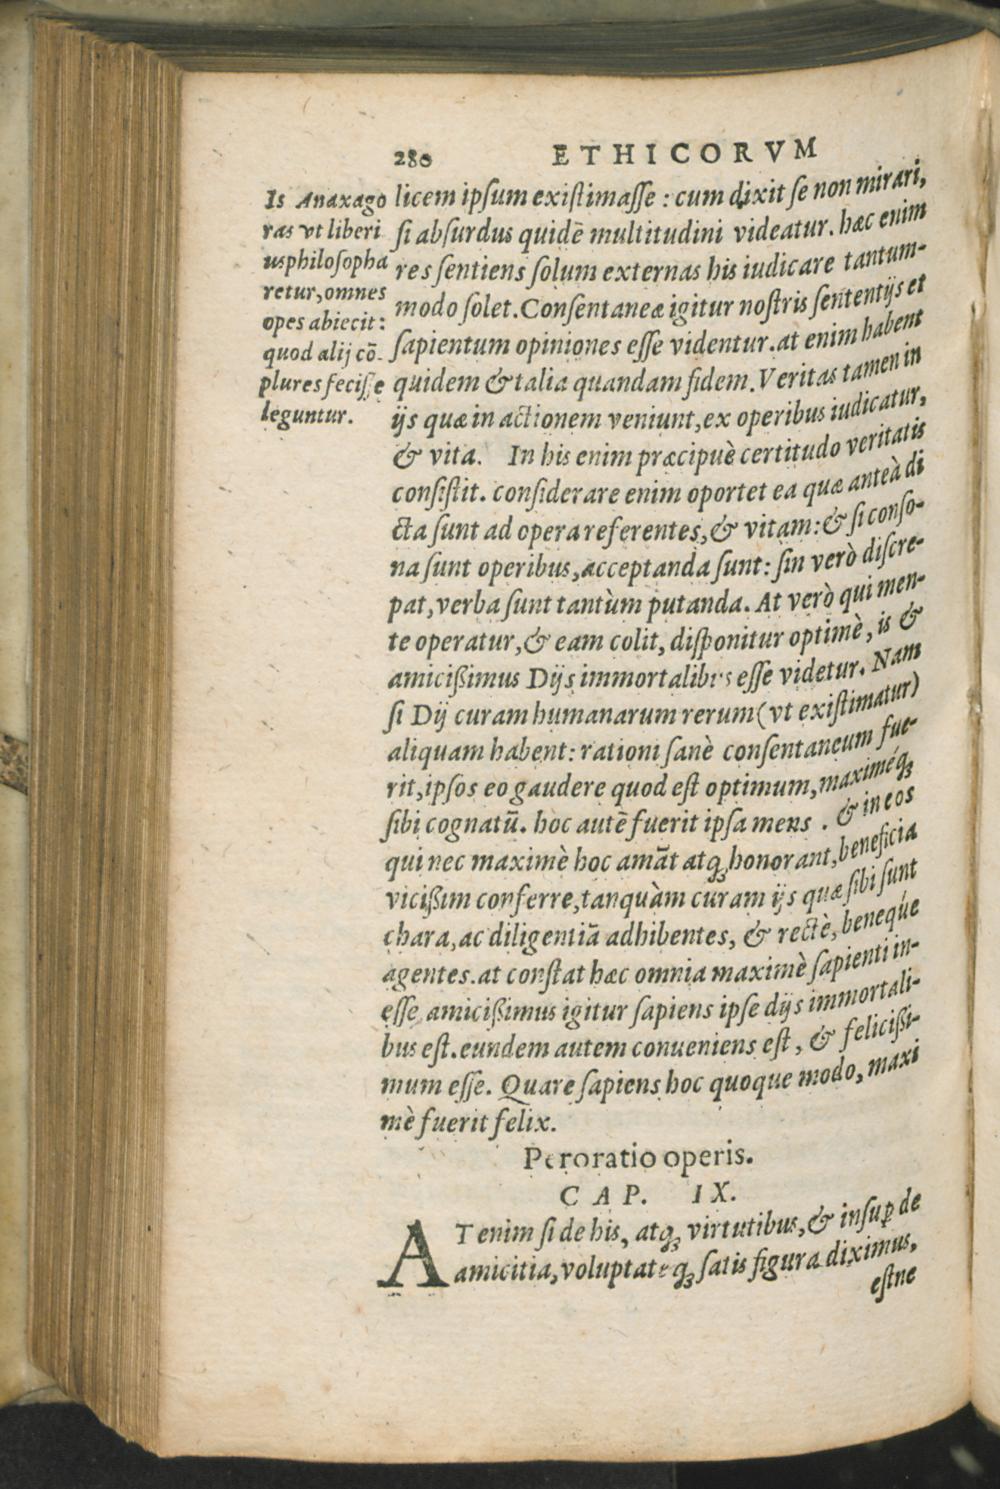 280 ETHICORVM
Is Anaxago
ras vt liberi
us philosopha
retur, omnes
opes abiecit:
quod alij cō-
plures fecisse
leguntur.
licem ipsum existimasse: cum dixit se non mirari,
si absurdus quidē multitudini videatur. hæc enim
res sentiens solum externas his iudicare tantum-
modo solet. Consentaneæ igitur nostris sententijs et
sapientum opiniones esse videntur. at enim habent
quidem & talia quandam fidem. Veritas tamen in
ijs quæ in actionem veniunt, ex operibus iudicatur,
& vita. In his enim præcipuè certitudo veritatis
consistit. considerare enim oportet ea quæ anteà di
cta sunt ad opera referentes, & vitam: & si conso-
na sunt operibus, acceptanda sunt: sin verò discre-
pat, verba sunt tantùm putanda. At verò qui men-
te operatur, & eam colit, disponitur optimè, is &
amicißimus Dijs immortalibus esse videtur. Nam
si Dij curam humanarum rerum (vt existimatur)
aliquam habent: rationi sanè consentaneum fue-
rit, ipsos eo gaudere quod est optimum, maximéq;
sibi cognatū. hoc autē fuerit ipsa mens. & in eos
qui nec maximè hoc amāt atq; honorant, beneficia
vicißim conferre, tanquàm curam ijs quæ sibi sunt
chara, ac diligentiā adhibentes, & rectè, beneque
agentes. at constat hæc omnia maximè sapienti in-
esse amicißimus igitur sapiens ipse dijs immortali-
bus est. eundem autem conueniens est, & felicißi-
mum esse. Quare sapiens hoc quoque modo, maxi
mè fuerit felix.
Peroratio operis.
CAP. IX.
AT enim si de his, atq; virtutibus, & insuꝑ de
amicitia, voluptateq; satis figura diximus,
estne